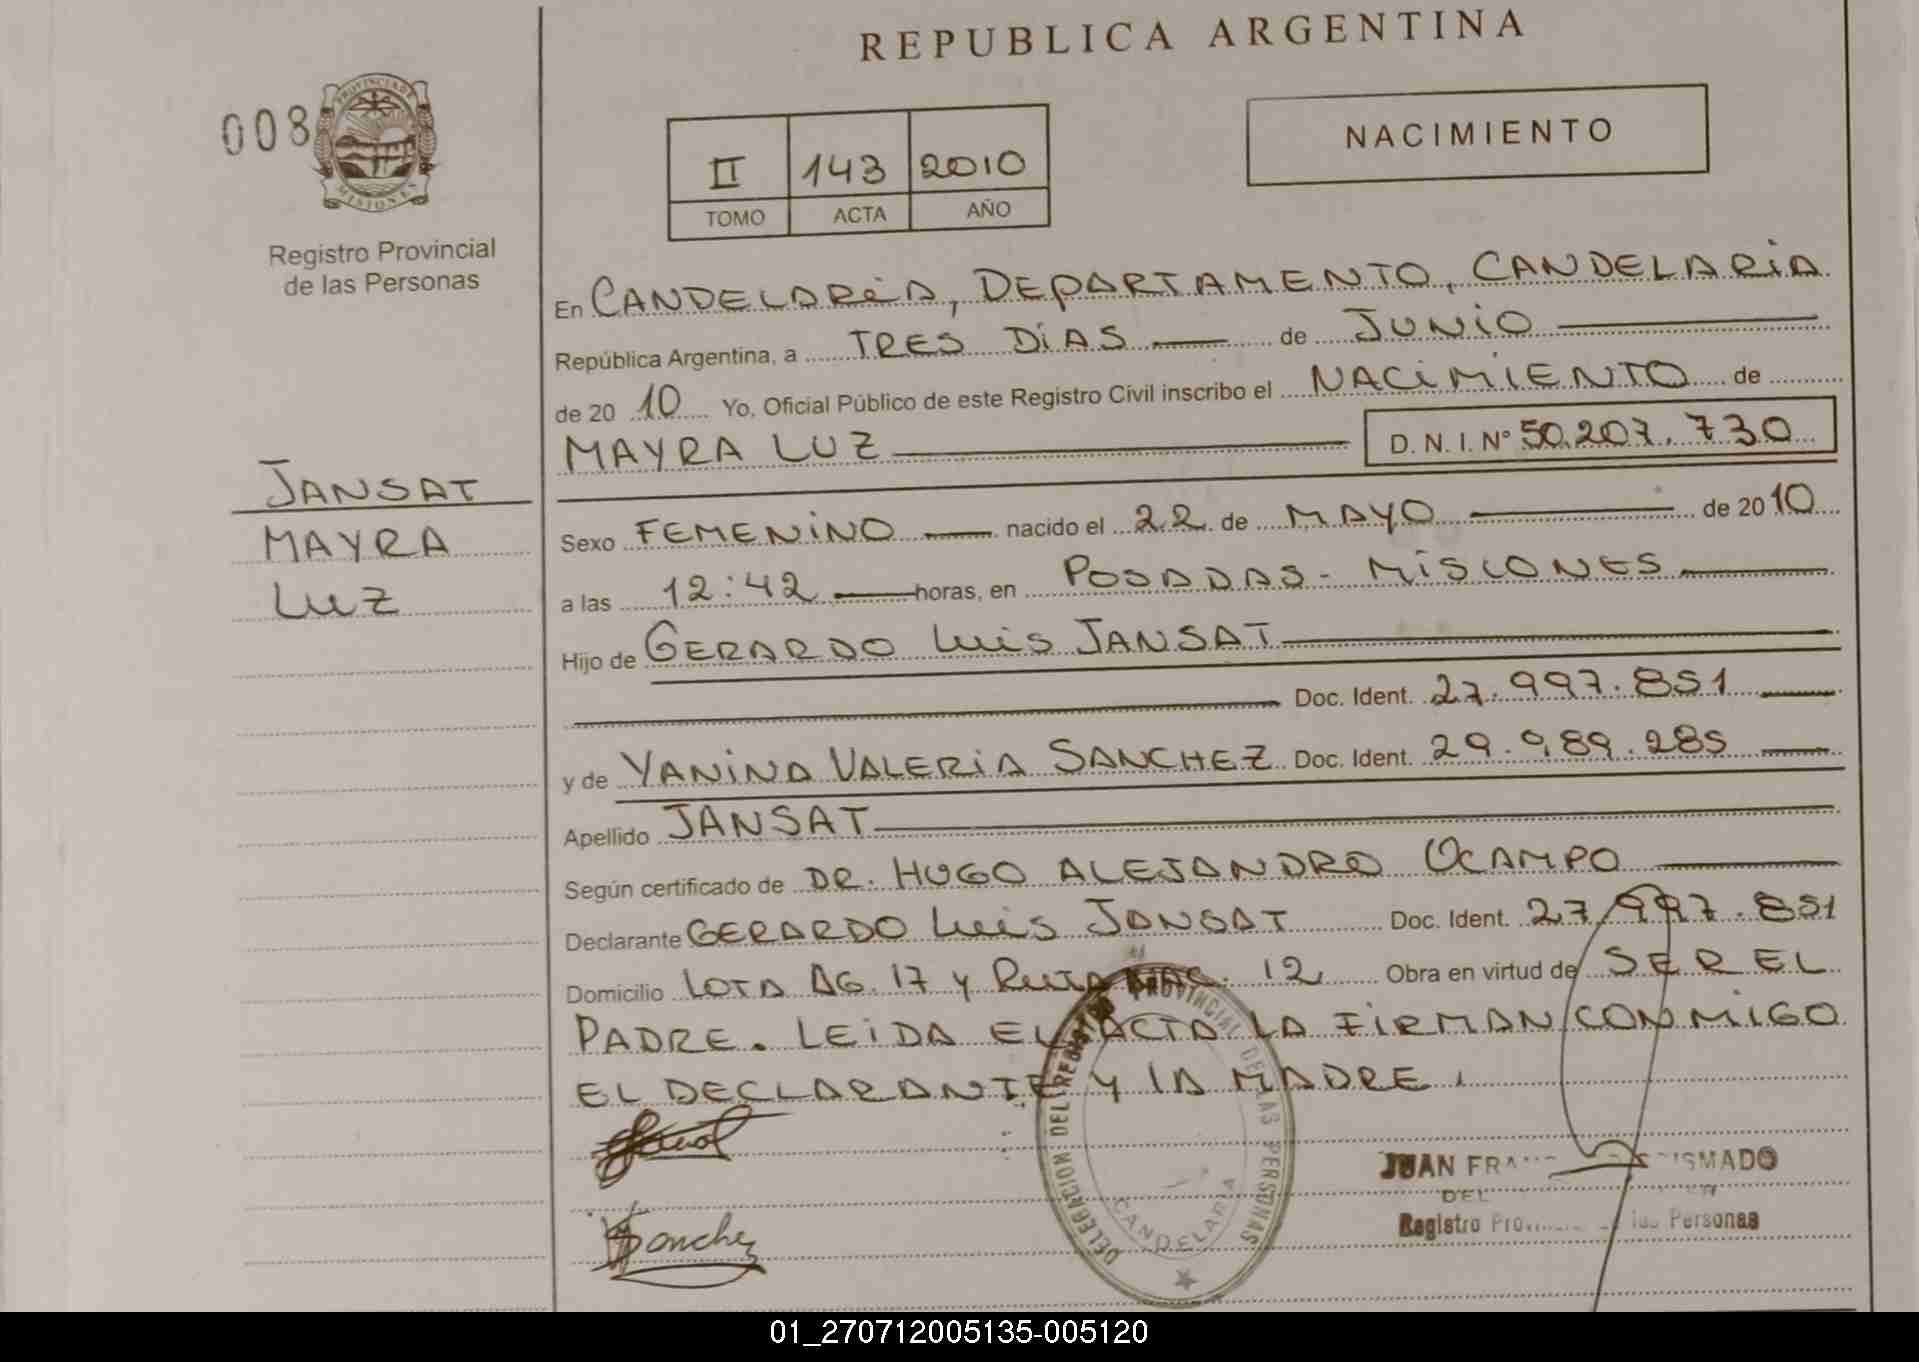 REPUBLICA ARGENTINA
008
PROVINCIA DE
MISIONES
Registro Provincial
de las Personas
II 143 2010
TOMO ACTA AÑO
NACIMIENTO
En CANDELARIA, DEPARTAMENTO, CANDELARIA
República Argentina, a TRES DÍAS de JUNIO
de 20 10 Yo, Oficial Público de este Registro Civil inscribo el NACIMIENTO de
MAYRA LUZ D. N. I. Nº 50.207.730
JANSAT
MAYRA
LUZ
Sexo FEMENINO nacido el 22 de MAYO de 2010
a las 12:42 horas, en POSADAS - MISIONES
Hijo de GERARDO Luis JANSAT
Doc. Ident. 27.997.851
y de YANINA VALERIA SANCHEZ Doc. Ident. 29.989.285
Apellido JANSAT
Según certificado de DR. HUGO ALEJANDRO OCAMPO
Declarante GERARDO Luis JANSAT Doc. Ident. 27.997.851
Domicilio LOTA AG. 17 y RUTA NAC. 12 Obra en virtud de SER EL
PADRE. LEIDA EL ACTA LA FIRMAN CONMIGO
EL DECLARANTE Y LA MADRE.
DELEGACION DEL REGISTRO PROVINCIAL DE LAS PERSONAS
CANDELARIA
Sanchez
JUAN
Registro de las Personas
01_270712005135-005120